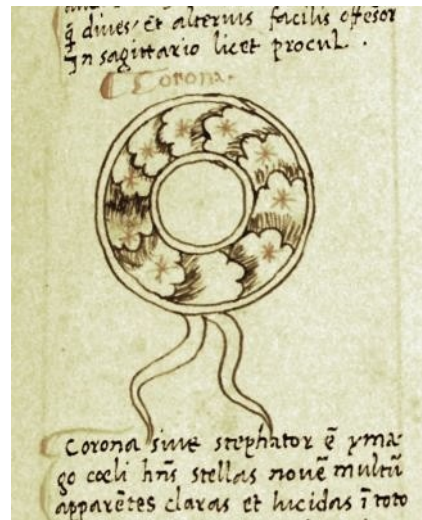 q̃ diues, Et alterius facilis offēsor
In sagittario licet procul.
Corona.
Corona siue stephator ē yma-
go cœli hñs stellas nouē multũ
apparētes claras et lucidas ĩ toto